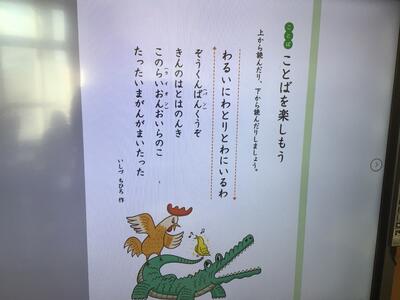 ことば
ことばを楽しもう
上から読んだり、下から読んだりしましょう。
わるいにわとりとわにいるわ
ぞうくんぱんくうぞ
きんのはとはのんき
このらいおんおいらのこ
たったいまがんがまいたった
いしづ ちひろ 作